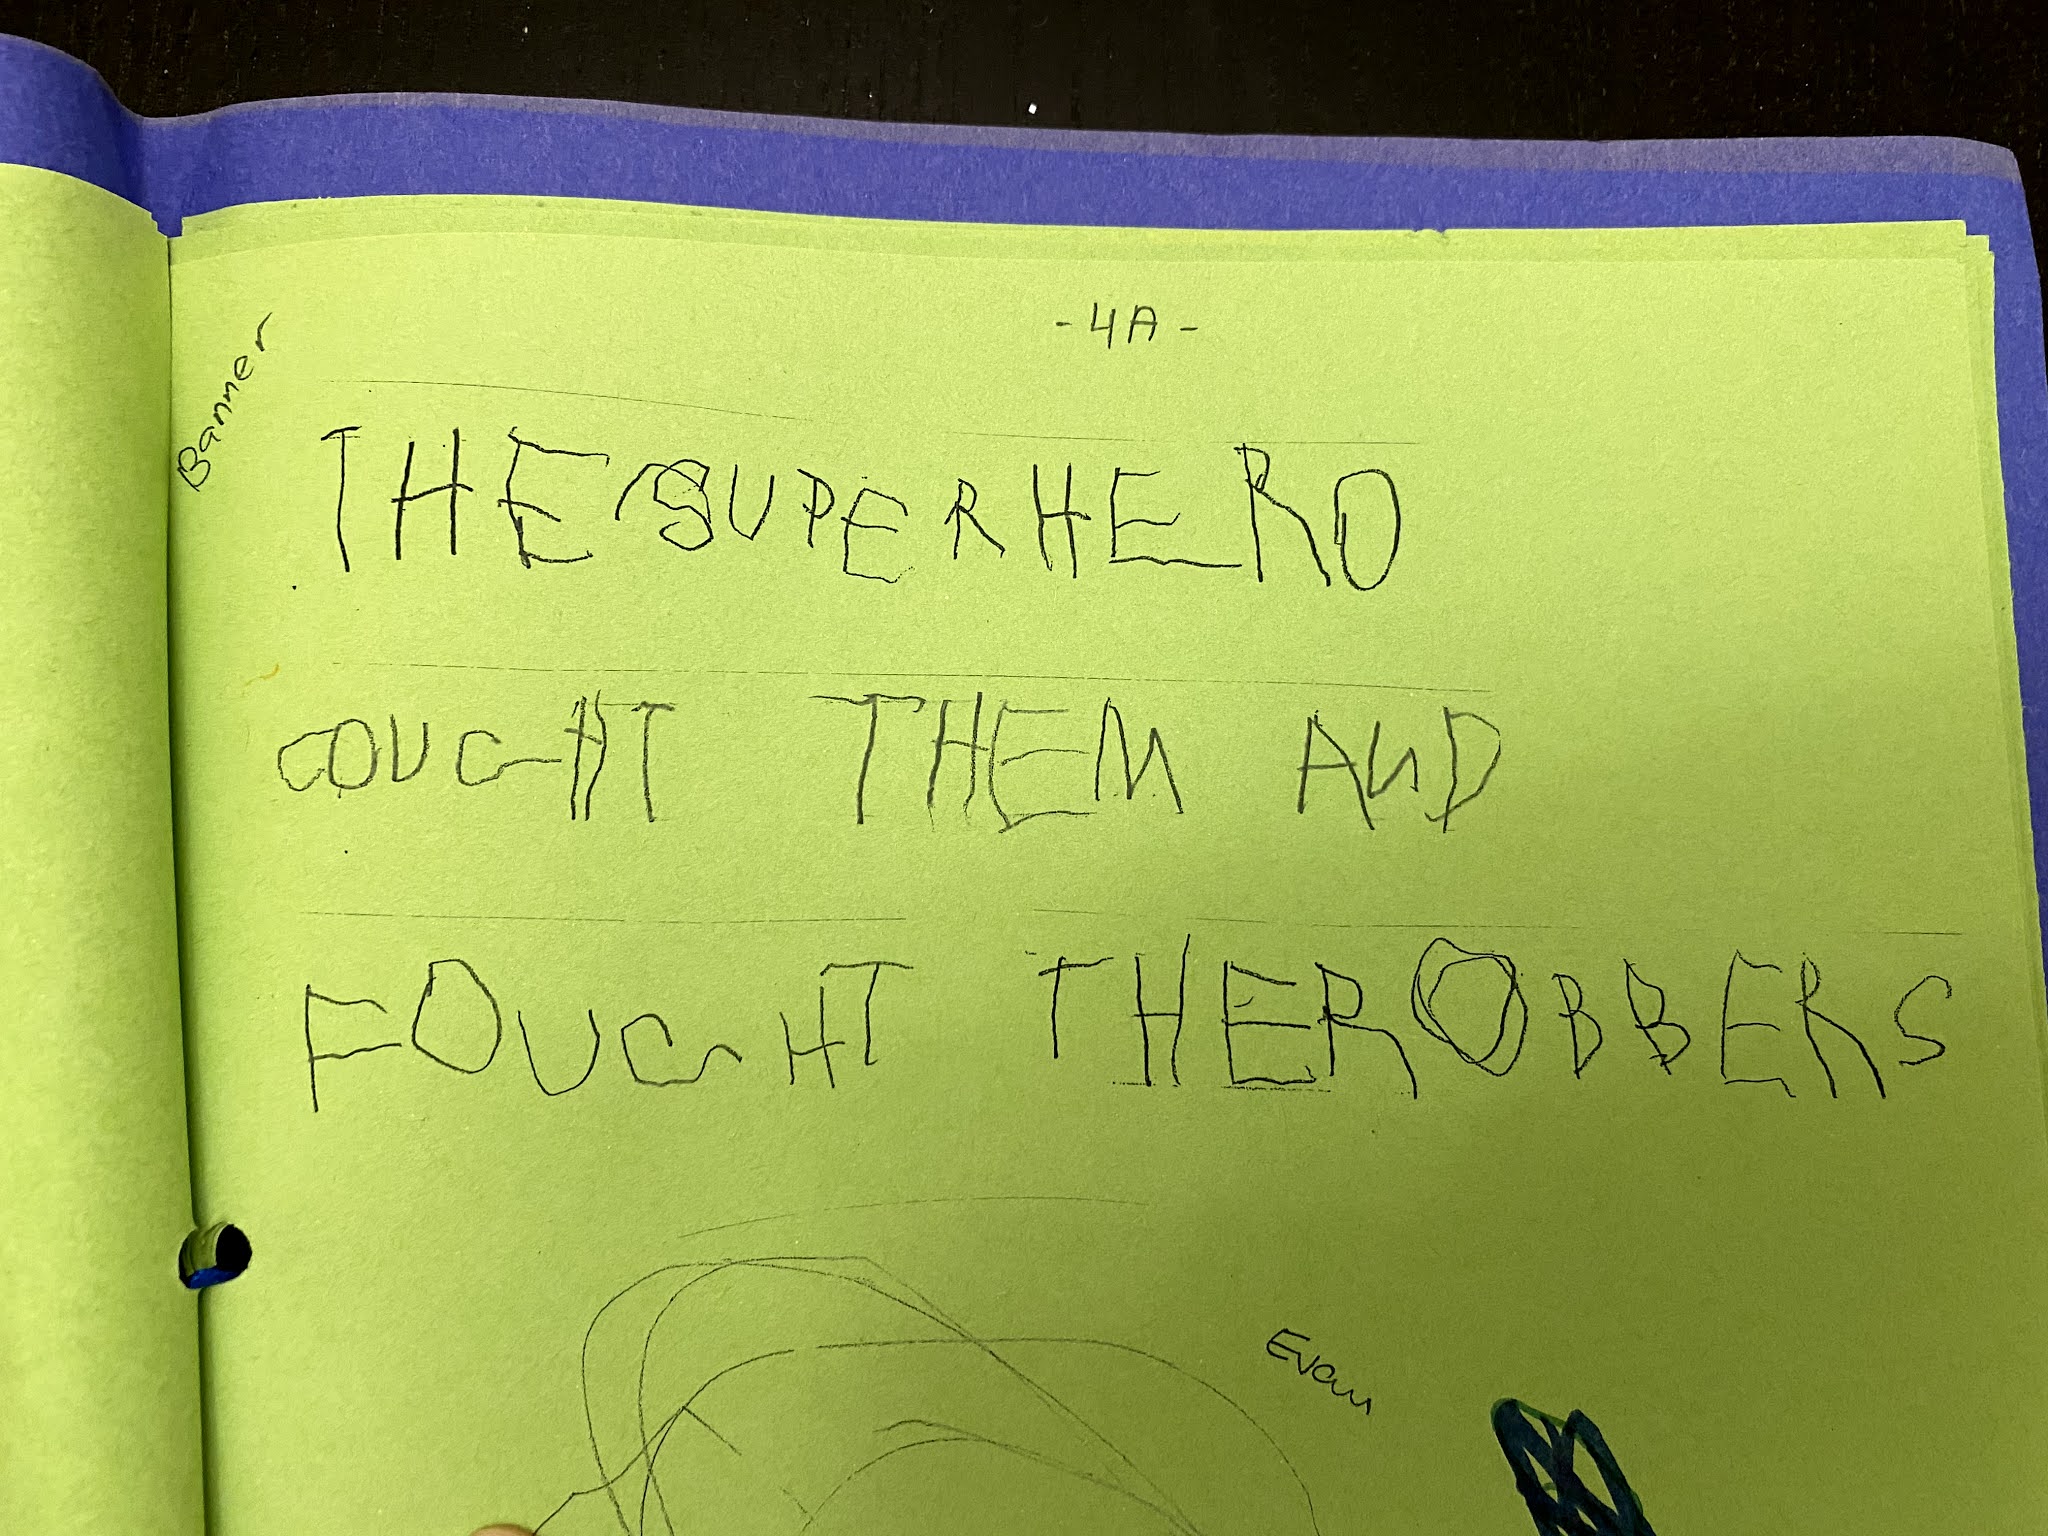 -4A-
Banner
THE SUPERHERO
COUGHT THEM AND
FOUGHT THE ROBBERS
Evan